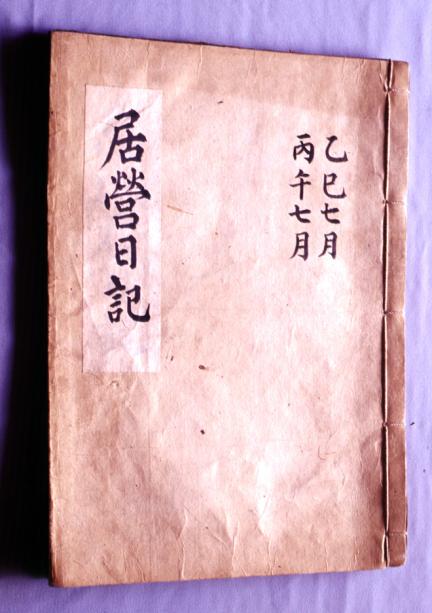 乙巳七月
丙午七月
居營日記